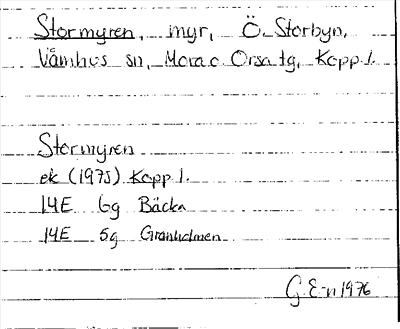 Stormyren, myr, Ö. Storbyn,
Våmhus sn, Mora o Orsa tg, Kopp l.
Stormyren
ek (1975) Kopp l.
14E 6g Bäcka
14E 5g Granholmen
G E-n 1976